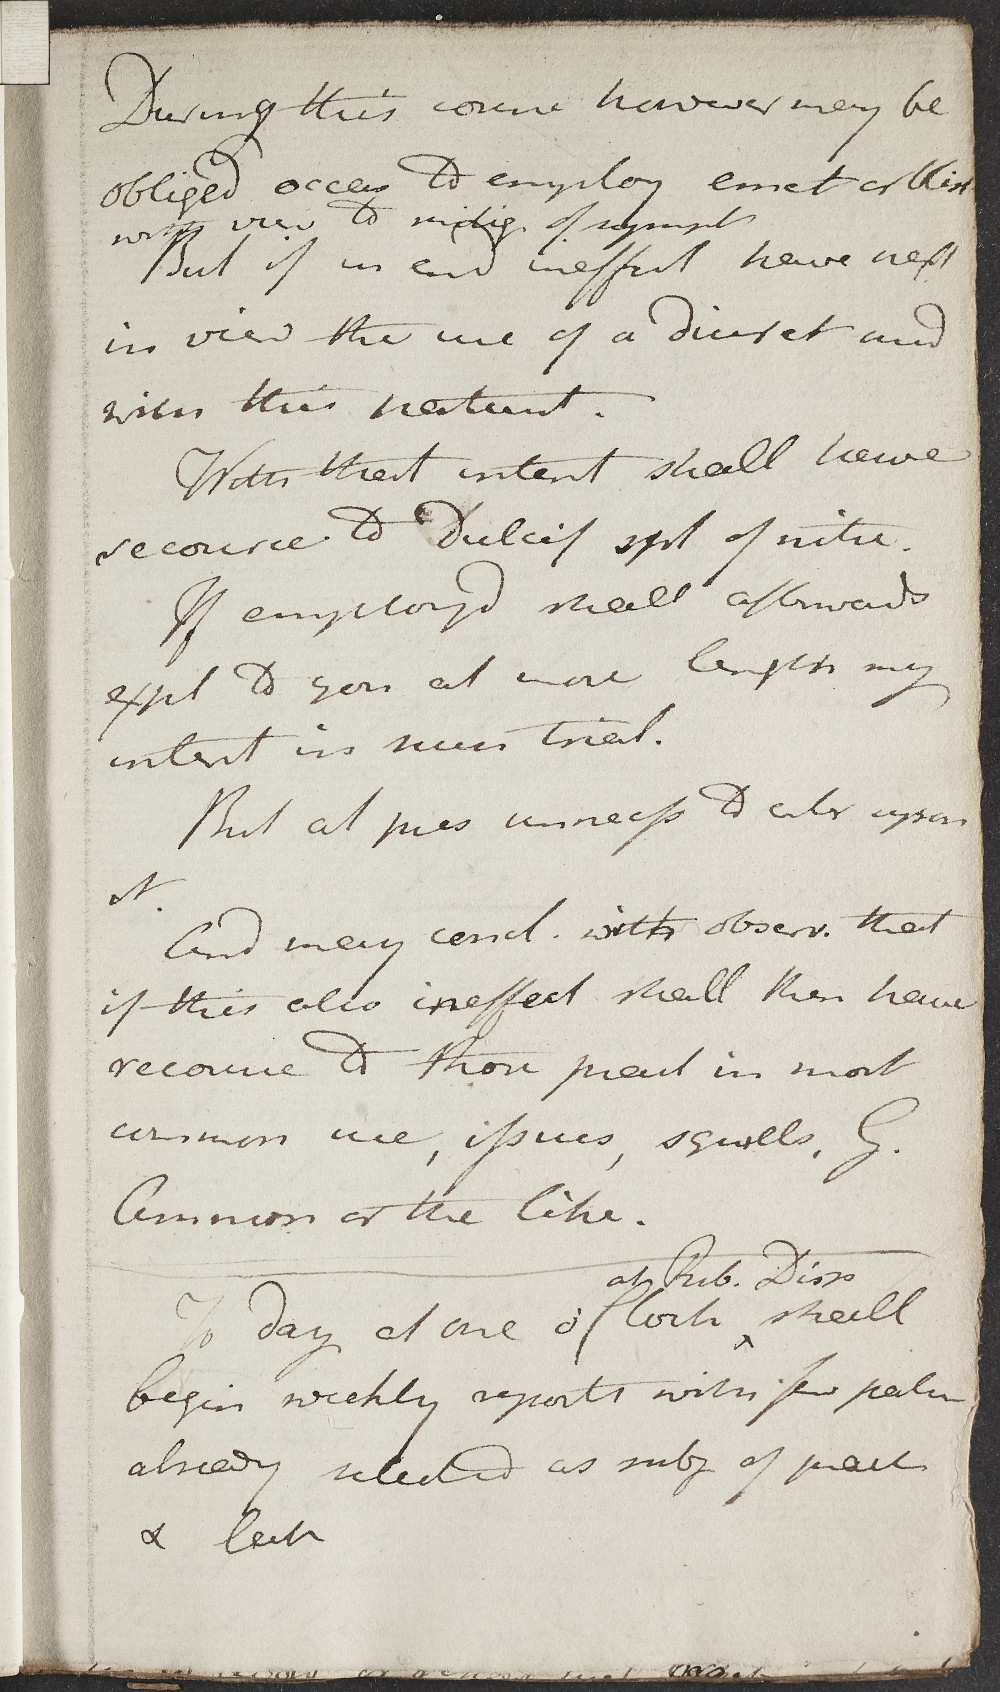 During this course however may be
obliged occas to employ emet or blist
with view to mitig. of sympt
But if in end ineffect have next
in view the use of a diuret and
with this natent.
With that intent shall have
recourse to Dulcif spt of nitre.
If employ'd shall afterwards
expl to you at more length my
intent in trial.
But at pres unnecess to enter upon
it.
And may concl. with observ. that
if this also ineffect shall then have
recourse to those pract in most
common use, issues, squills, G.
Ammon or the like.
at Pub. Diss
To day at one o'Clock ^ shall
begin weekly reports with few patien
already selected as subj of pract
& lect